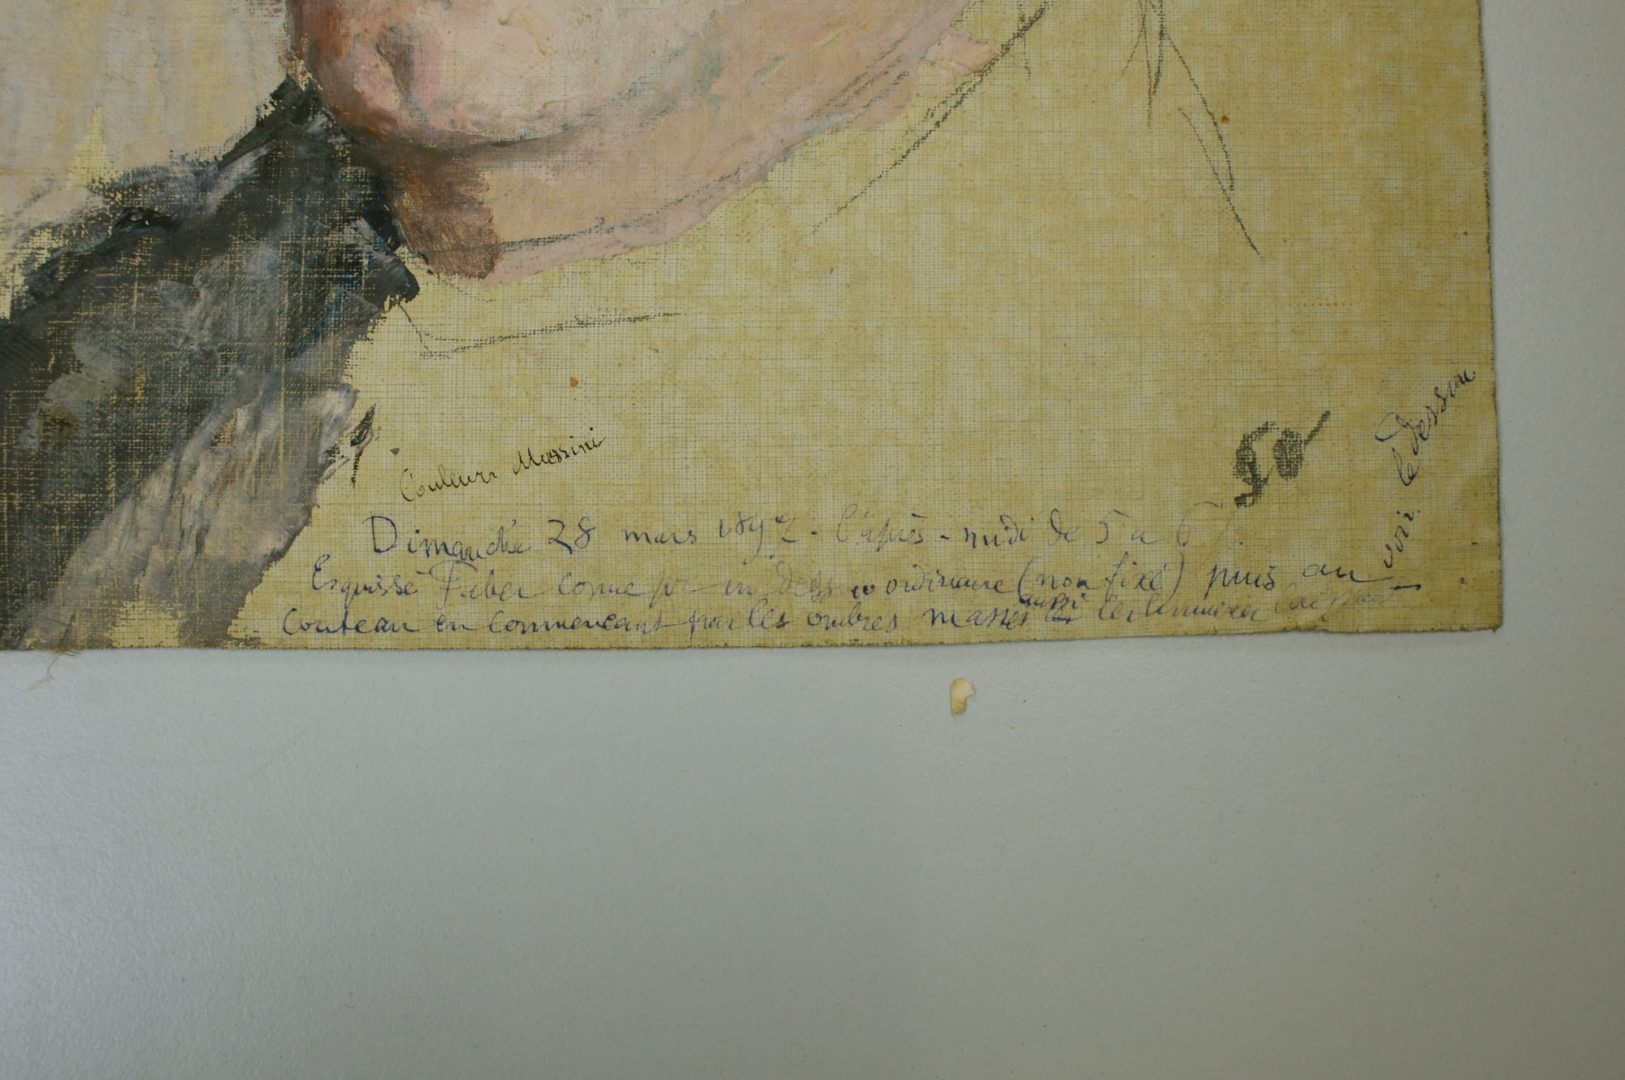 Couleurs Mussini
Dimanche 28 mars 1897 - l'après-midi de 5 à 6
Esquissé Faber comme pr un dess ordinaire (non fixé) puis au
Couteau en commencant par les ombres masses aussi les lumieres
voir le dessin